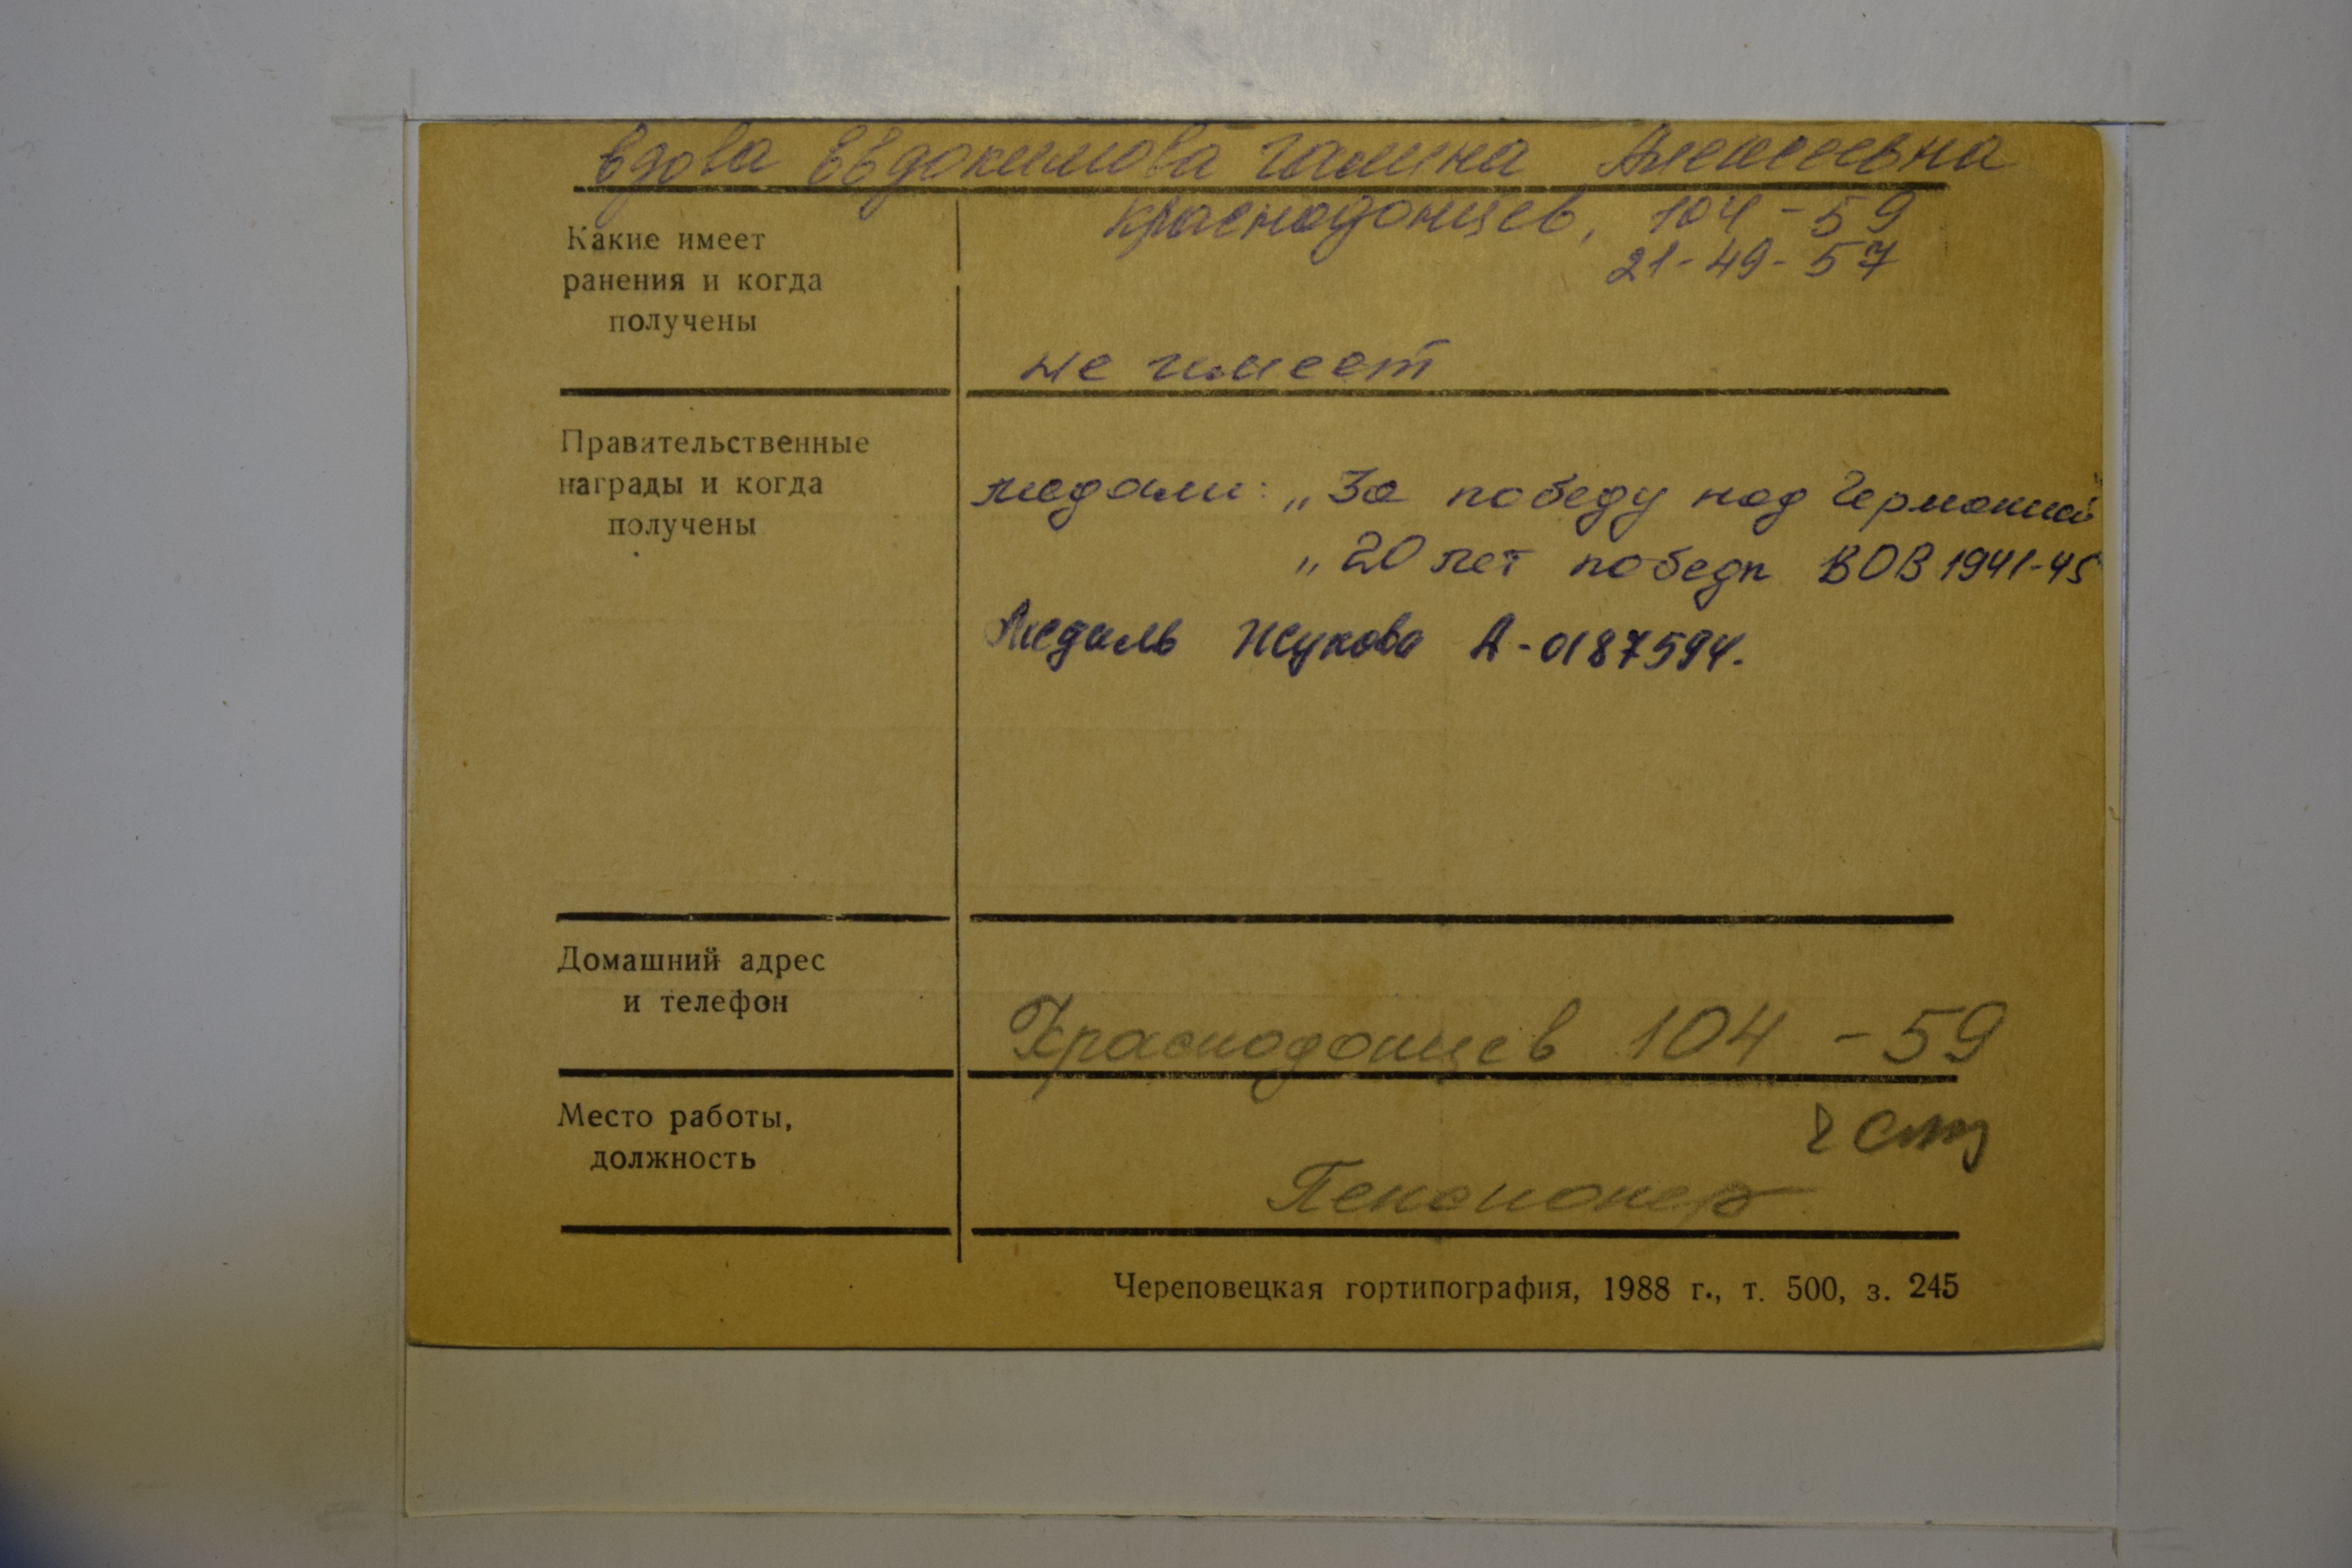 вдова Евдокимова Галина Алексеевна
Краснодонцев, 104-59
21-49-57
Какие имеет
ранения и когда
получены
не имеет
Правительственные
награды и когда
получены
медали: „За победу над Германией"
„20 лет победы ВОВ 1941-45
Медаль Жукова А-0187594.
Домашний адрес
и телефон
Краснодонцев 104-59
Место работы,
должность
Пенсионер
Череповецкая гортипография, 1988 г., т. 500, з. 245